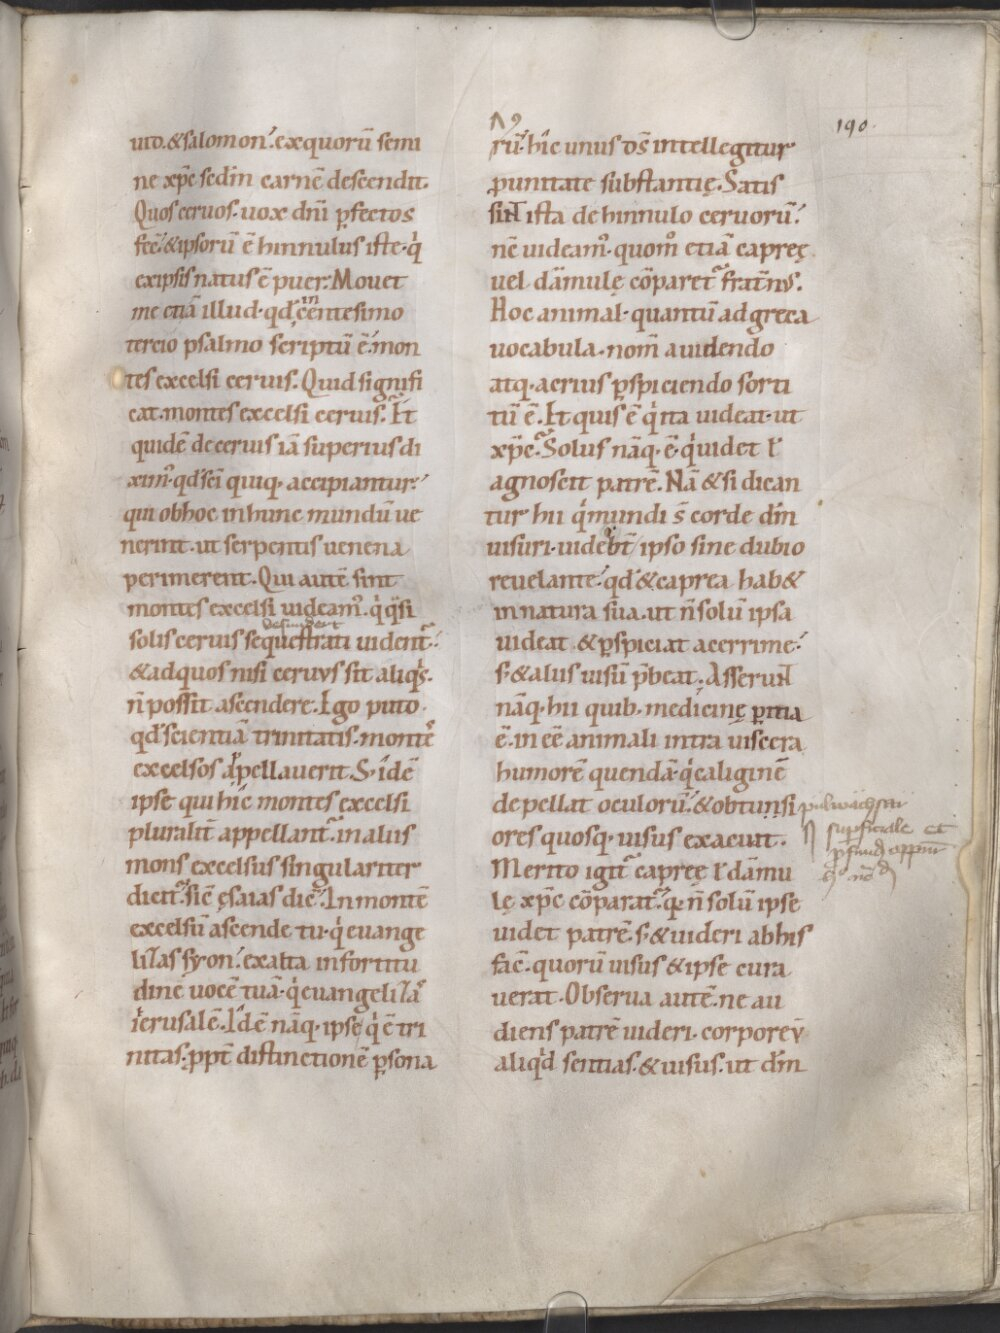 190.
uid. &salomon. exquorū semi
ne xp̄c sedm̄ carnē descendit.
Quos ceruos. uox dn̄i p̄fectos
fec̄. &ipsorū ē hinnulus iste. q̇
exipsis natus ē puer. Mouet
me etiā illud. qd̄ in centesimo
tercio psalmo scriptū ē. mon
tes excelsi ceruis. Quid signifi
cat. montes excelsi ceruis. Et
quidē de ceruis iā superius di
xim᷒. qd̄ sc̄i quiq. accipiantur.
qui obhoc in hunc mundū ue
nerint. ut serpentis uenena
perimerent. Qui autē sint
montes excelsi uideam᷒. q̇ q̄si
solis ceruis sequestrati uident᷑.
&adquos nisi ceruus sit aliq̇s.
n̄ possit ascendere. Ego puto.
qd̄ scientiā trinitatis. montē
excelsos appellauerit. S. idē
ipse qui hic montes excelsi
pluralit̄ appellant᷑. in aliis
mons excelsus singulariter
dicit᷑. sic ęsaias dic̄. In montē
excelsū ascende tu. q̇ euange
lizas syon. exalta in fortitu
dine uocē tuā. q̇ euangelizas
ierusalē. Idē nāq. ipse q̇ ē tri
nitas. ppt̄ distinctionē p̱sona
rū. hic unus ds̄ intellegitur
p̱ unitate substantię. Satis
sint ista de hinnulo ceruorū.
nc̄ uideam᷒. quom̊ etiā capreę
uel dāmulę cōparet᷑ frat̄n᷒.
Hoc animal. quantū ad greca
uocabula. nom̄ a uidendo
atq. acrius p̱spiciendo sorti
tū ē. Et quis ē q̇ ita uideat. ut
xp̄c. Solus nāq. ē. q̇ uidet ł
agnoscit patrē. Nā & si dican
tur hii q̇ mundi s̄ corde dm̄
uisuri. uidebt̄ ipso sine dubio
reuelante. qd̄ & caprea hab&
in natura sua. ut n̄ solū ipsa
uideat & p̱spiciat acerrime.
s. & aliis uisū p̄beat. Asserunt
nāq. hii quib. medicinę p̱itia
ē. in eē animali intra uiscera
humorē quendā. q̇ caliginē
depellat oculorū. & obtunsi
ores quosq. uisus exacuit.
Merito igit᷑ capreę ł dāmu
lę xp̄c cōparat᷑. qr n̄ solū ipse
uidet patrē. s. & uideri ab his
fac̄. quorū uisus & ipse cura
uerat. Obserua autē. ne au
diens patrē uideri. corporeū
aliq̇d sentias. & uisus. ut dm̄
supficiale et